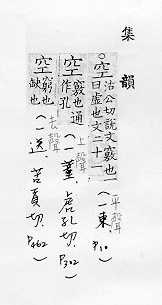 集韻
○空 枯公切說文竅也一
曰虛也文二十一
平聲
(一東, P10)
空 竅也通
作孔
上聲
(一董, 虎孔切. P302)
空 窮也
缺也
去聲
(一送, 苦貢切. P462)